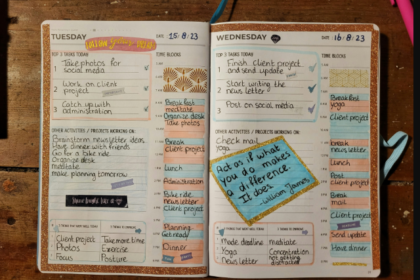 TUESDAY
DATE 15·8·23
TOP 3 TASKS TODAY
TIME BLOCKS
1 Take photos for
social media
2 Work on client
project
3 Catch up with
administration
Breakfast
meditate
Organize desk
Take photos
OTHER ACTIVITIES / PROJECTS WORKING ON:
Brainstorm newsletter ideas
Have dinner with friends
Go for a bike ride
Organize desk
meditate
make planning tomorrow
Break
client project
Lunch
Administration
Bike ride
newsletter
Client project
Planning
Get ready
Dinner
Client project
Photos
Focus
Take more time
Exercise
Posture
WEDNESDAY
DATE 16·8·23
TOP 3 TASKS TODAY
TIME BLOCKS
1 Finish client project
and send update
2 Start writing the
newsletter
3 Post on social media
Breakfast
yoga
Client project
OTHER ACTIVITIES / PROJECTS WORKING ON:
Check mail
Yoga
Act as if what
you do makes
a difference.
It does.
- William James
break
newsletter
Lunch
Post
client project
Break
mail
Client project
Send update
Have dinner
made deadline
Yoga
Newsletter
mediate
Concentration
not getting
distracted